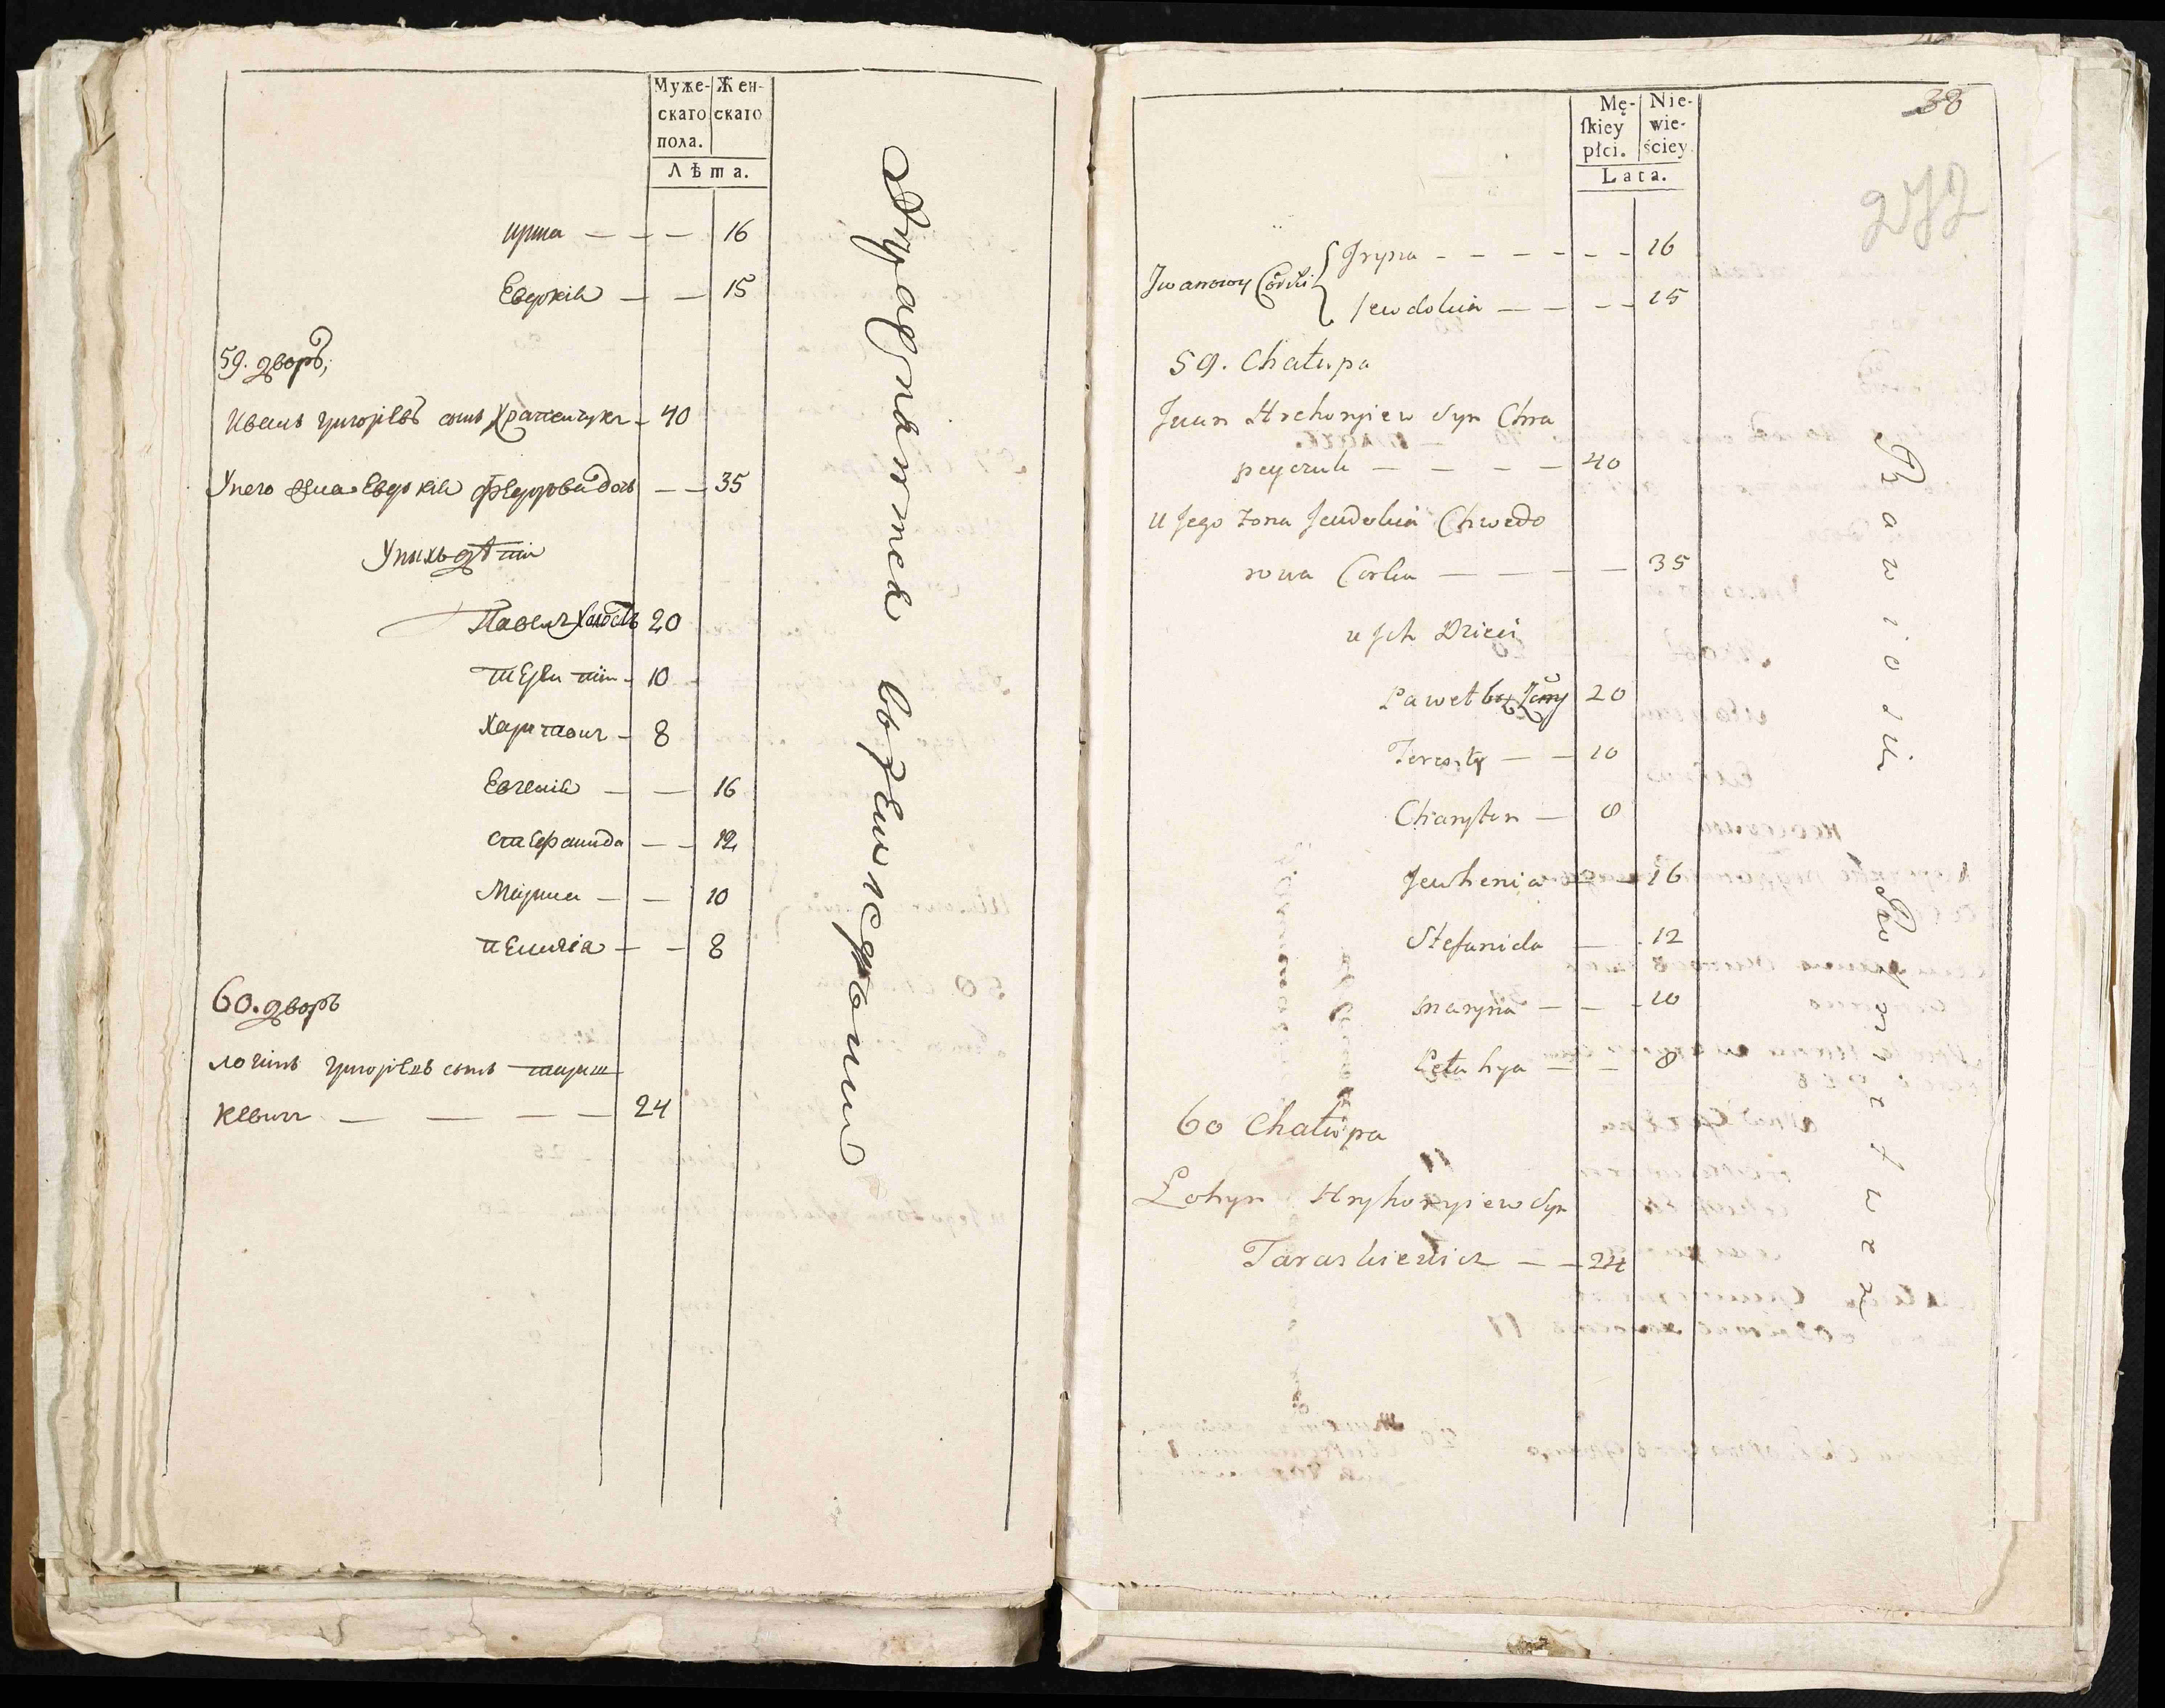 Муже-
скаго
пола.
Жен-
скаго
Лѣта.
ирина — — — 16
Евдокия — — 15
59. дворъ,
Иванъ григорiевъ сынъ Храпейчукъ - 40
Унего жена Евдокия федорова дочь — — 35
Унихъ дѣти
Павелъ холостъ 20
терентiи - 10
Харитонъ - 8
Евгения — — 16
стефанида — — 12
Марина — — 10
пелагiа — — 8
60. дворъ
логинъ григорiевъ сынъ тараш
кевичъ — — — — 24
Mę-
ſkiey
płci.
Nie-
wie-
ściey
Lata.
38
272
Iwanowy Córki
Iryna - - - - - - 16
Jewdokia — — - - 15
59. Chałupa
Iwan Hrehoryiew Syn Chra
peyczuk — — — — 40
u Jego żona Jewdokia Chwedo
rowa Corka — — — — 35
u Ich Dzieci
Paweł bez żony 20
10
Charyton — 8
Jewhenia — — 16
Stefanida — 12
Maryna — — - 10
Pełahya — — 8
60 Chałupa
Łohyn Hryhoryiew Syn
Taraszkiewicz — — 24